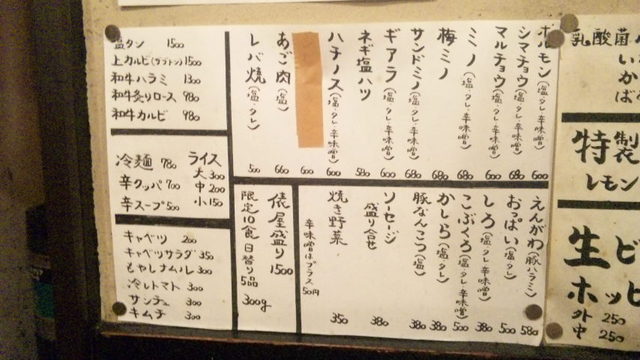 ホルモン(塩・タレ・辛味噌) 600
シマチョウ(塩・タレ・辛味噌) 680
マルチョウ(塩・タレ・辛味噌) 680
ミノ(塩・タレ・辛味噌) 680
梅ミノ 680
サンドミノ(塩・タレ・辛味噌) 680
ギアラ(塩・タレ・辛味噌) 600
ネギ塩ハツ 580
ハチノス(塩・タレ・辛味噌) 600
600
あご肉(塩) 660
レバ焼(塩・タレ) 500
えんがわ(豚ハラミ) 580
おっぱい(塩・タレ) 500
しろ(塩・タレ・辛味噌) 380
こぶくろ(塩・タレ・辛味噌) 500
かしら(塩・タレ) 380
豚なんこつ(塩) 380
ソーセージ
盛り合せ 380
焼き野菜 350
辛味噌はプラス50円
俵屋盛り 1500
限定10食 日替り5品 300g
塩タン 1500
上カルビ(サブトン) 1500
和牛ハラミ 1300
和牛炙りロース 980
和牛カルビ 980
冷麺 780
辛クッパ 700
辛スープ 500
ライス
大 300
中 200
小 150
キャベツ 200
キャベツサラダ 350
もやしナムル 300
冷しトマト 300
サンチュ 300
キムチ 300
乳酸菌
い
か
ば
特製
レモン
生ビ
ホッピ
外 250
中 250